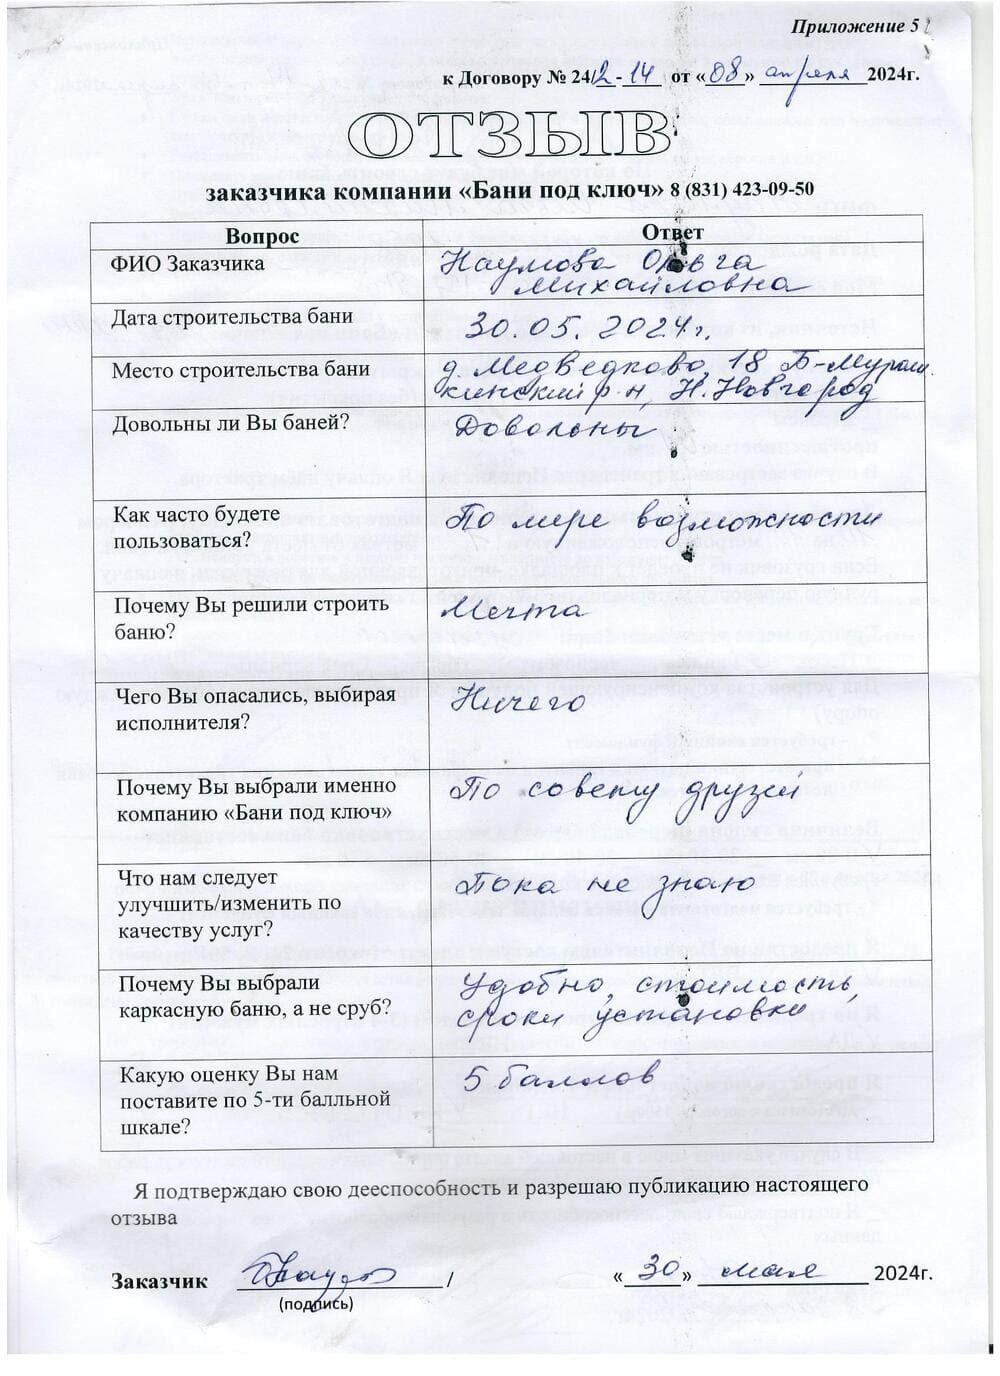 Приложение 5
к Договору № 24/2-14 от «08» апреля 2024г.
ОТЗЫВ
заказчика компании «Бани под ключ» 8 (831) 423-09-50
Вопрос Ответ
ФИО Заказчика Наумова Ольга
Михайловна
Дата строительства бани 30.05.2024г.
Место строительства бани д.Медведково, 18 Б-Мураш
кинский р-н, Н.Новгород
Довольны ли Вы баней? Довольны
Как часто будете По мере возможности
пользоваться?
Почему Вы решили строить Мечта
баню?
Чего Вы опасались, выбирая Ничего
исполнителя?
Почему Вы выбрали именно По совету друзей
компанию «Бани под ключ»
Что нам следует Пока не знаю
улучшить/изменить по
качеству услуг?
Почему Вы выбрали Удобно, стоимость,
каркасную баню, а не сруб? сроки установки
Какую оценку Вы нам 5 баллов
поставите по 5-ти балльной
шкале?
Я подтверждаю свою дееспособность и разрешаю публикацию настоящего
отзыва
Заказчик / «30» мая 2024г.
(подпись)